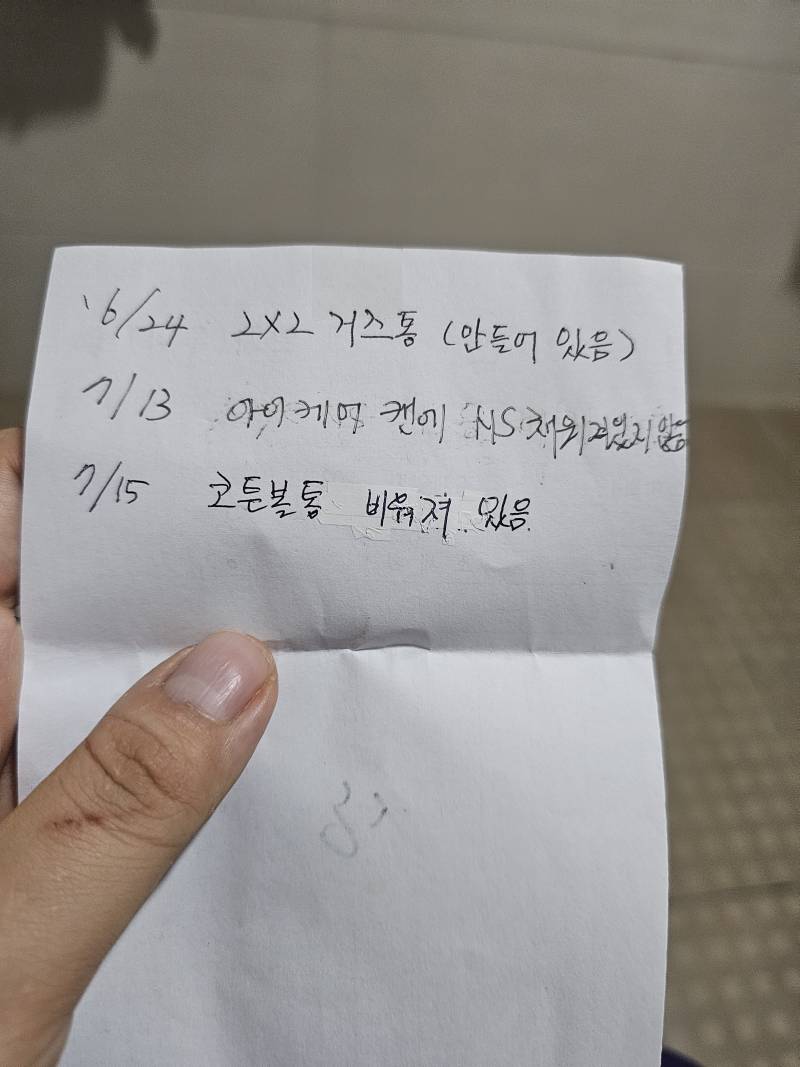 6/24 2X2 거즈통 (안들어 있음)
7/13 아이케어 캔에 NS 채워져있지않음
7/15 코튼볼통 비워져 있음.